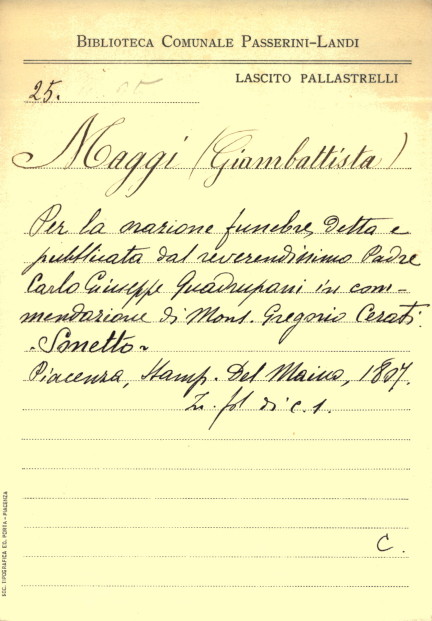 BIBLIOTECA COMUNALE PASSERINI-LANDI
LASCITO PALLASTRELLI
25.
Maggi (Giambattista)
Per la orazione funebre detta e
pubblicata dal reverendissimo Padre
Carlo Giuseppe Quadrupani in com-
mendazione di Mons. Gregorio Cerati.
- Sonetto -
Piacenza, Stamp. Del Maino, 1807.
fol di c. 1.
C.
SOC. TIPOGRAFICA ED. PORTA - PIACENZA